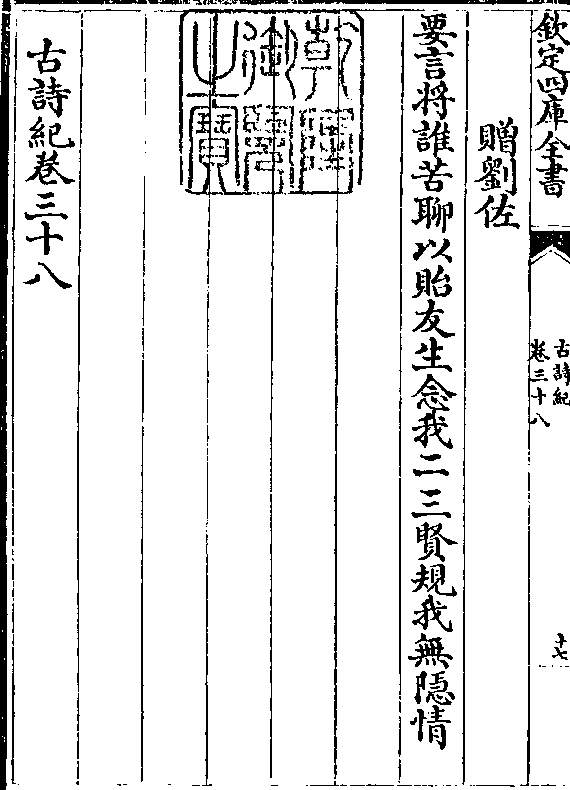 欽定四庫全書
古詩紀
卷三十八
十七
贈劉佐
要言將誰苦聊以貽友生念我二三賢規我無隱情
乾隆御覽之寶
古詩紀卷三十八